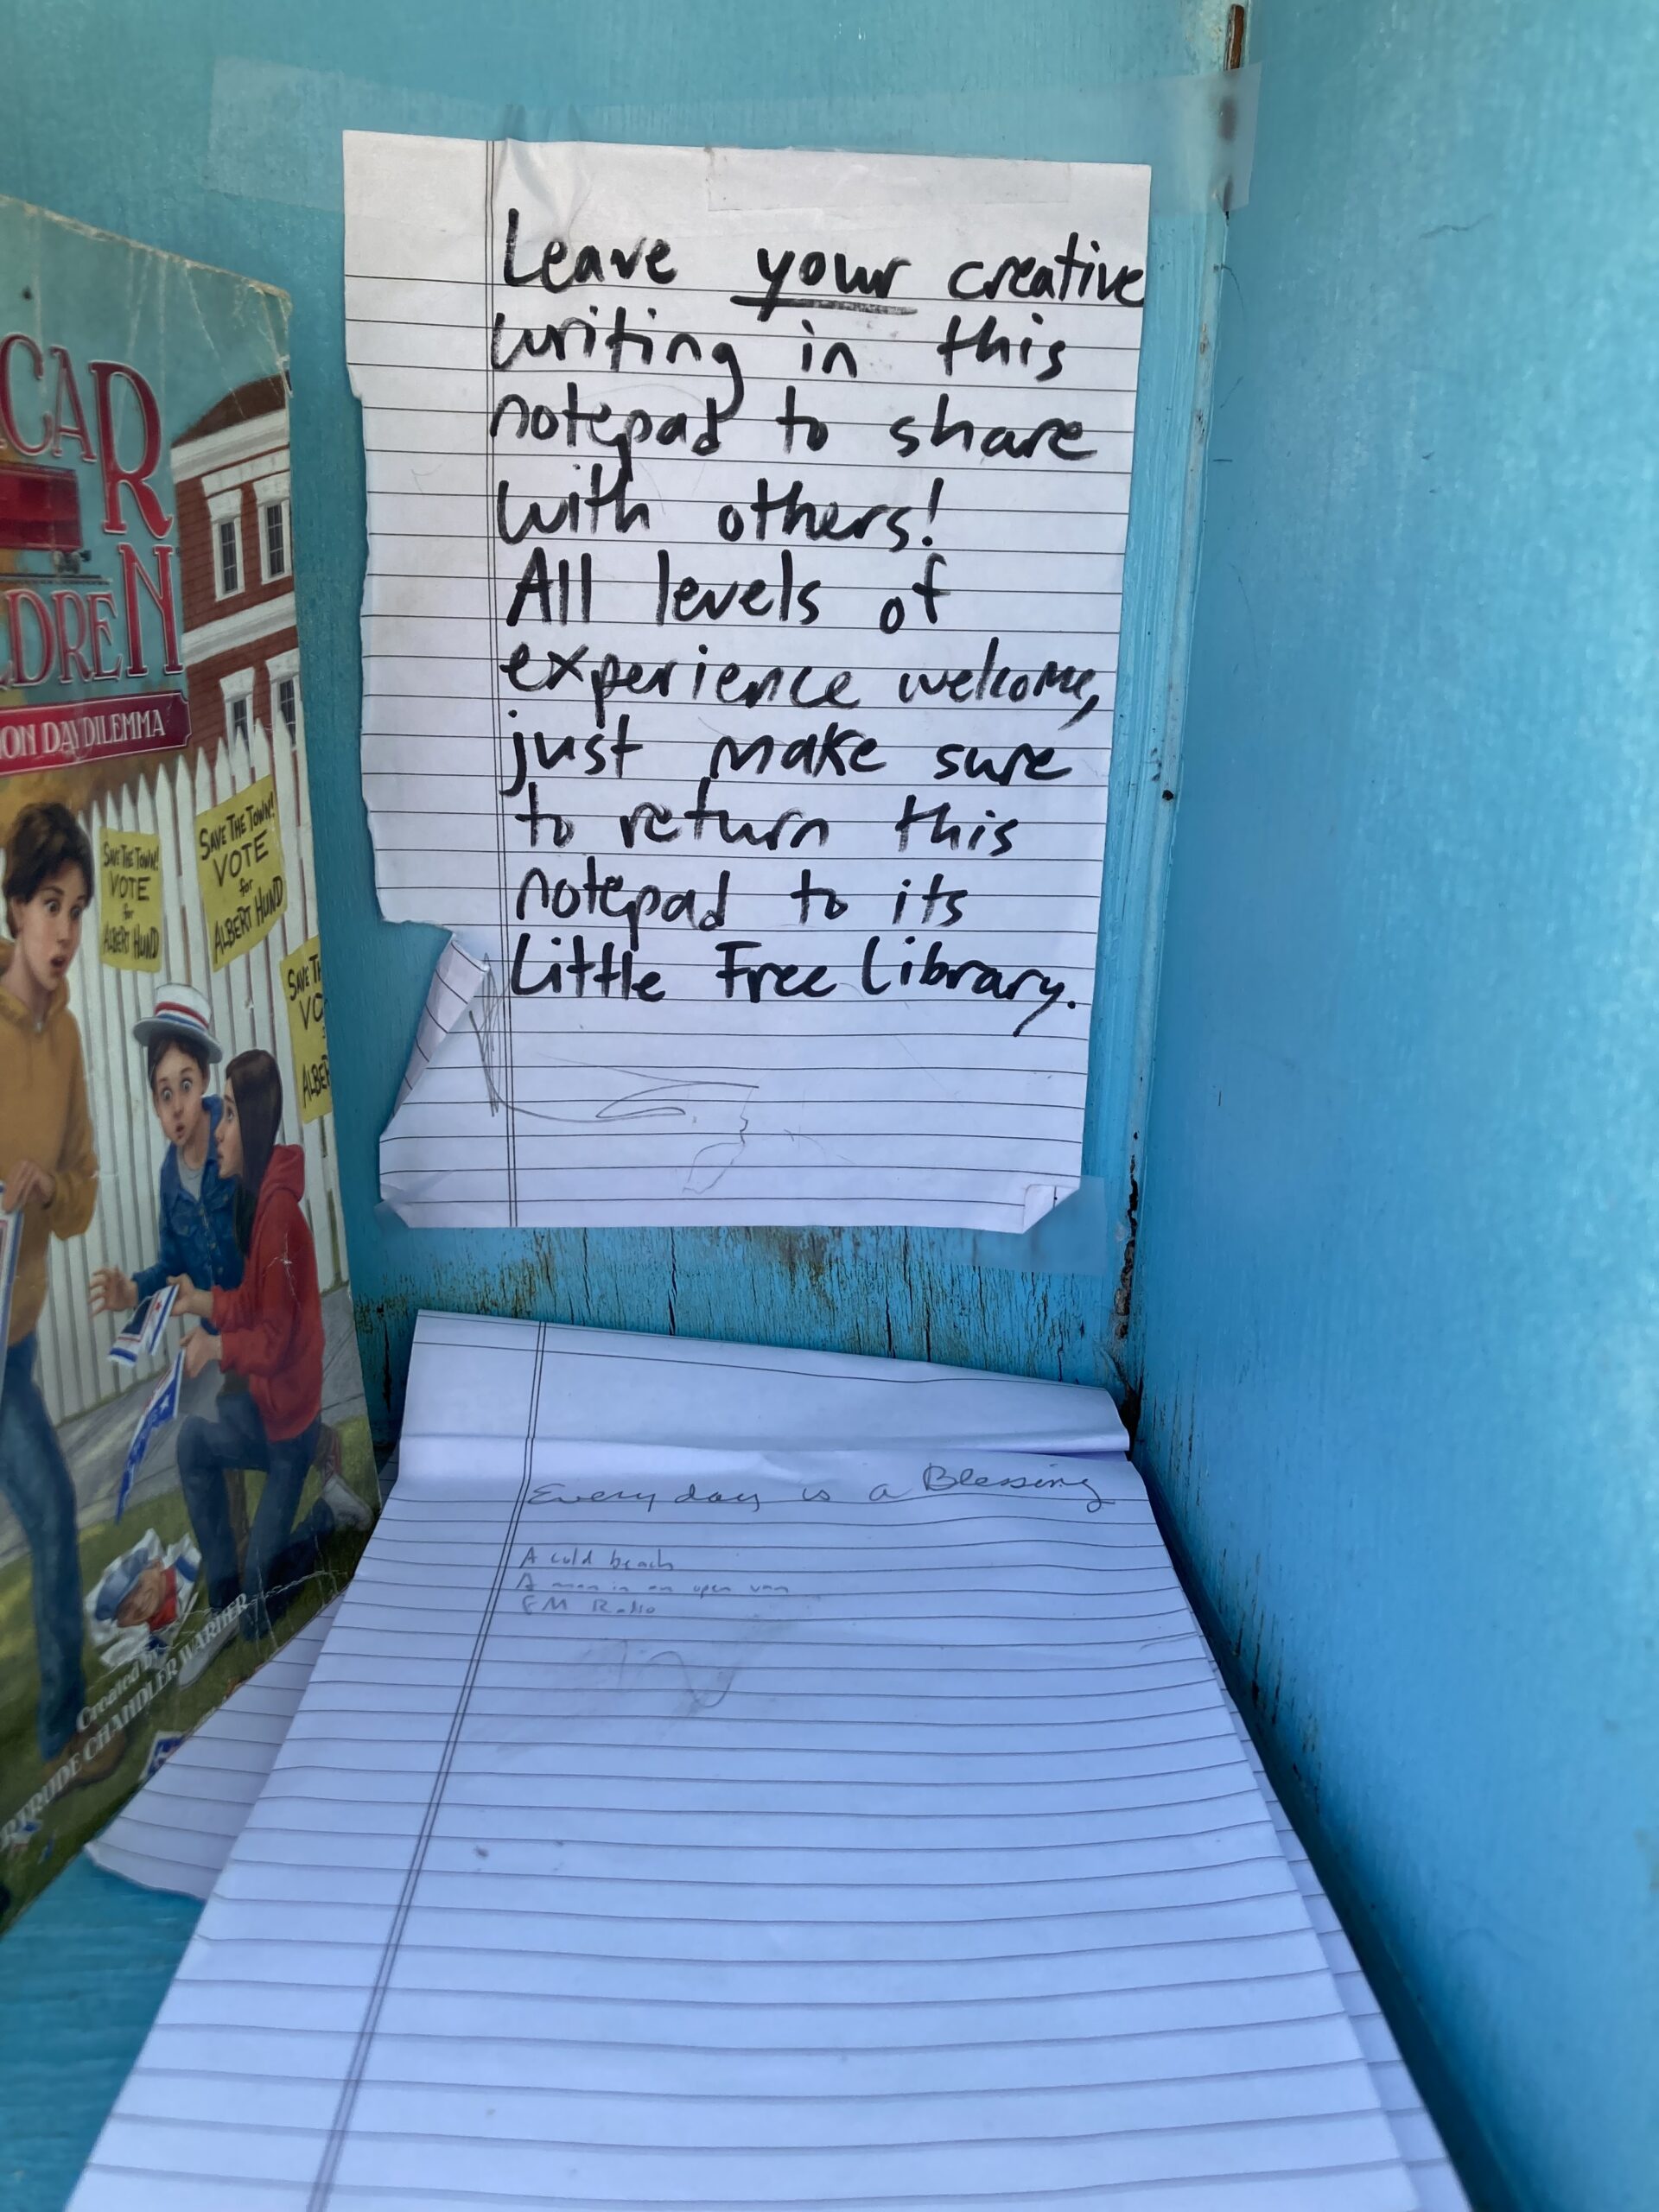 Leave your creative
writing in this
notepad to share
with others!
All levels of
experience welcome,
just make sure
to return this
notepad to its
Little Free Library.
Every day is a Blessing
A cold beach
A man in an open van
FM Radio
CAR
DREN
ON DAY DILEMMA
SAVE THE TOWN!
VOTE
for
ALBERT HUND
SAVE THE TOWN!
VOTE
for
ALBERT HUND
SAVE TH
VO
ALBE
Created by
RTRUDE CHANDLER WARNER